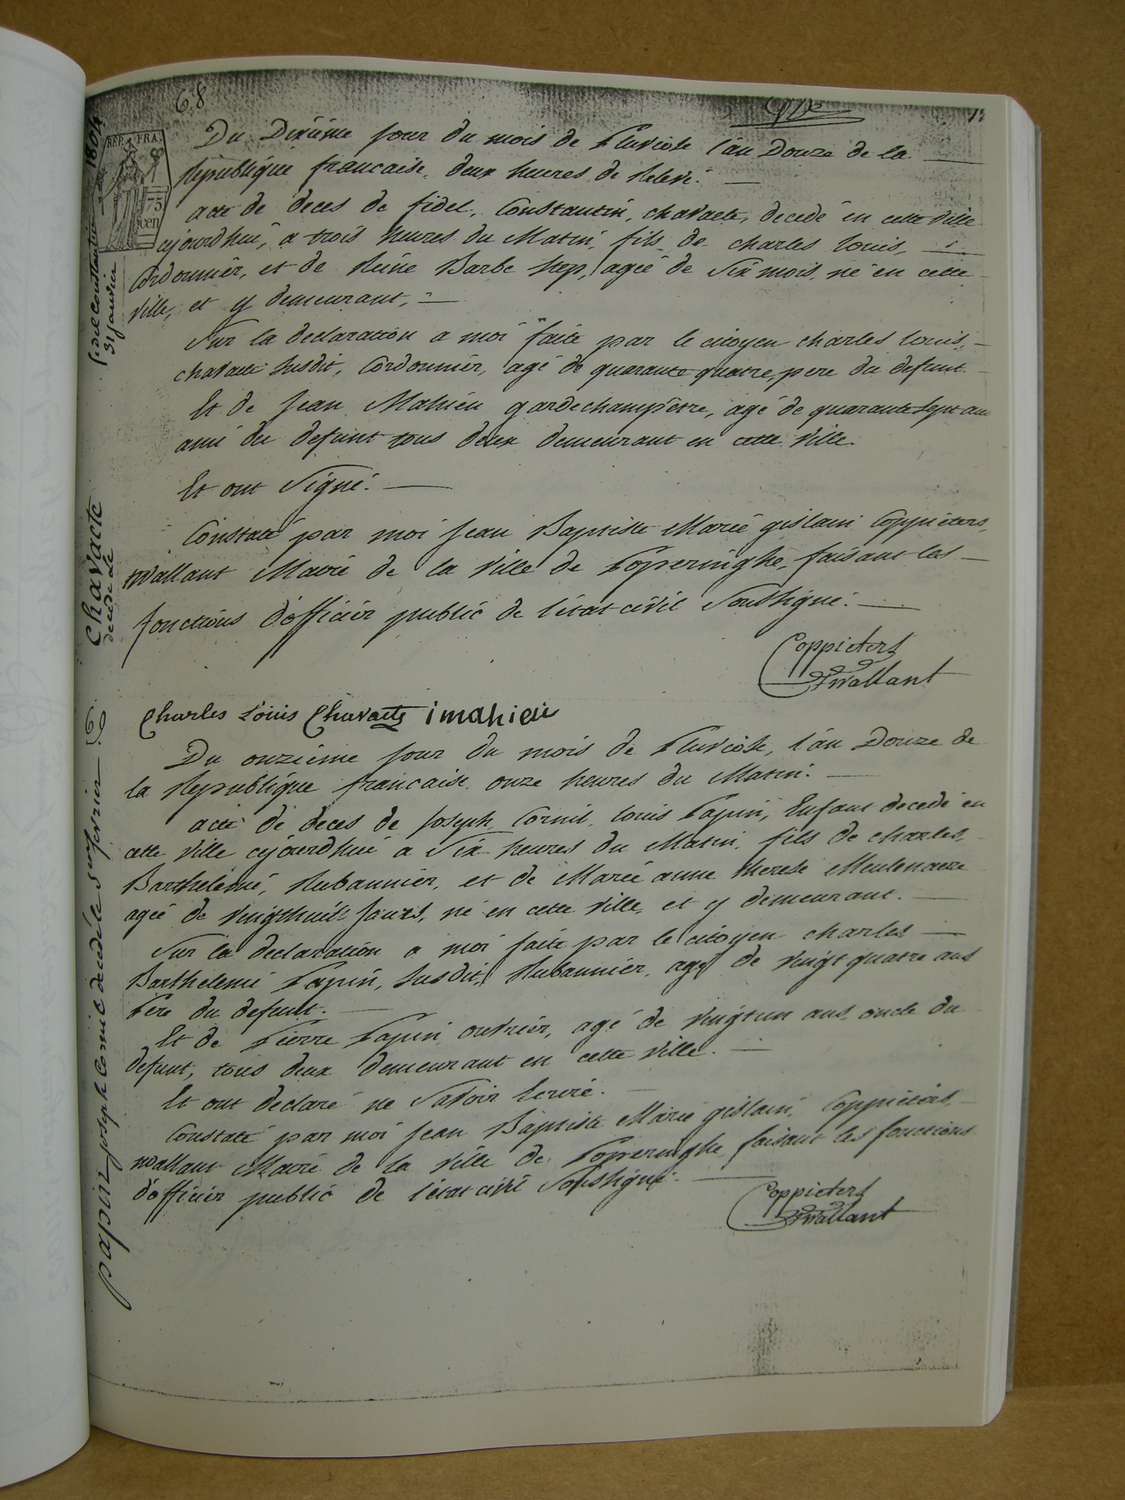 68
Du Dixiéme jour du mois de Pluviose l'an Douze de la
Republique francaise, deux heures de Relevé.
acte de deces de fidel, Constantin, chavaete, decedé en cette ville
ajourdhui, a trois heures du Matin, fils de charles louis,
Cordonnier, et de Reine Barbe Step, agée de Six mois, né en cette
ville, et y demeurant,
Sur la declaration a moi faite par le citoyen charles louis,
chavaete susdit, Cordonnier, agé de quarante quatre, pere du defunt
Et de Jean Mahieu gardechampetre, agé de quarante sept ans
ami du defunt tous deux demeurant en cette ville.
Et ont Signé.
Constaté par moi Jean Baptiste Marie gislain Coppieters,
wallant Maire de la ville de Poperinghe, faisant les
fonctions d'officier public de l'etat civil Soussigné.
Coppieters
Wallant
Charles Louis Chavaete imahieu
Du onziéme jour du mois de Pluviose, l'an Douze de
la Republique francaise, onze heures du Matin.
acte de deces de Joseph Cornil louis Papin, Enfant decedé en
cette ville ajourdhui a Six heures du Matin, fils de charles
Barthelemi, Rubannier, et de Marie anne therese Meulenaere
agée de vingthuit Jours, né en cette ville, et y demeurant.
Sur la declaration a moi faite par le citoyen charles
Barthelemi Papin, Susdit, Rubannier, agé de vingt quatre ans
Pere du defunt.
Et de Pierre Papin, ouvrier, agé de vingtun ans, oncle du
defunt, tous deux demeurant en cette ville.
Et ont declaré ne Savoir Ecrire.
Constaté par moi Jean Baptiste Marie gislain, Coppieters,
wallant Maire de la ville de Poperinghe faisant les fonctions
d'officier public de l'etat civil Soussigné.
Coppieters
Wallant
1804
REP. FRA.
75
cen
fidel constantin
31 janvier
Chavaete
decede le
69
papin joseph cornil decedé le 1 fevrier